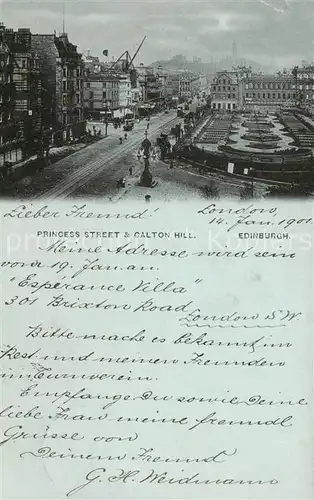 Lieber Freund! London,
14. Jan. 1901
PRINCESS STREET & CALTON HILL. EDINBURGH.
Meine Adresse wird sein
vom 19. Jan. an.
"Esperance Villa"
301 Brixton Road
London S.W.
Bitte mache es bekannt im
Rest. und meinen Freunden
im Turnverein.
Empfange Du sowie Deine
liebe Frau meine freundl.
Grüsse von
Deinem Freund
G. H. Weidmann